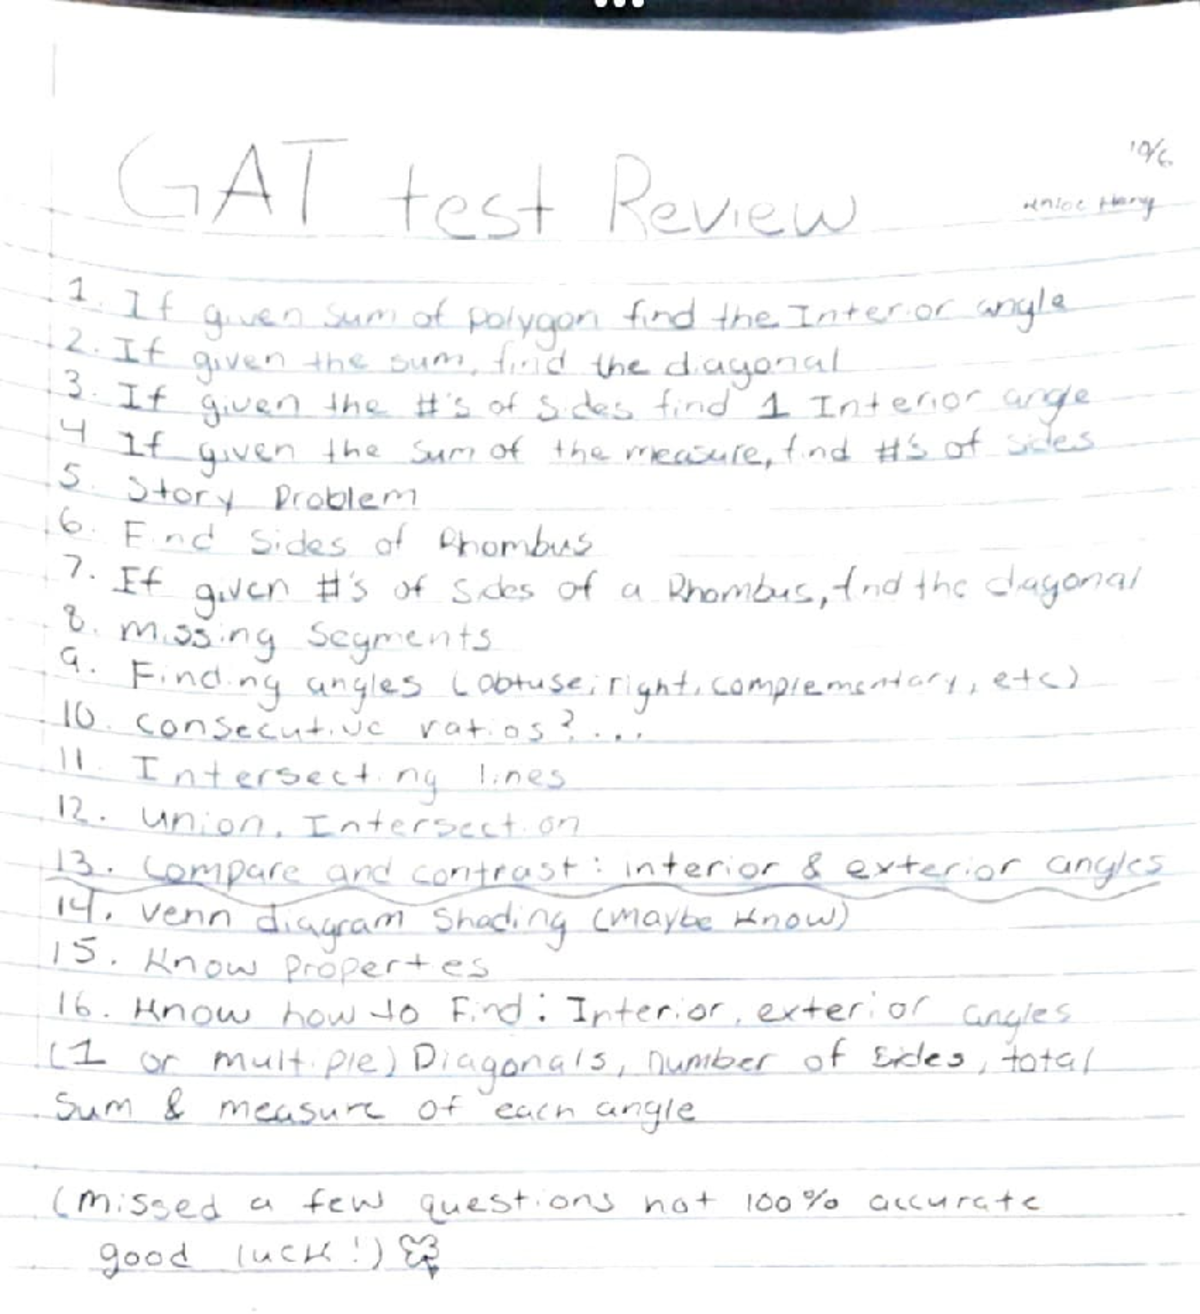 GAT test Review
10/6
Hang
1. If given sum of polygon find the Interior angle
2. If given the sum, find the diagonal
3. If given the #'s of sides find 1 Interior ange
4 If given the sum of the measure, find #'s of sides
5. Story Problem
6. Find sides of Rhombus
7. If given #'s of sides of a Rhombus, find the diagonal
8. missing segments
9. Finding angles (obtuse, right, complementary, etc)
10. consecutive ratios?...
11. Intersecting lines
12. union, Intersection
13. Compare and contrast: interior & exterior angles
14. venn diagram shading (maybe know)
15. Know properties
16. Know how to Find: Interior, exterior angles
(1 or multiple) Diagonals, number of sides, total
sum & measure of each angle
(missed a few questions not 100% accurate
good luck!)